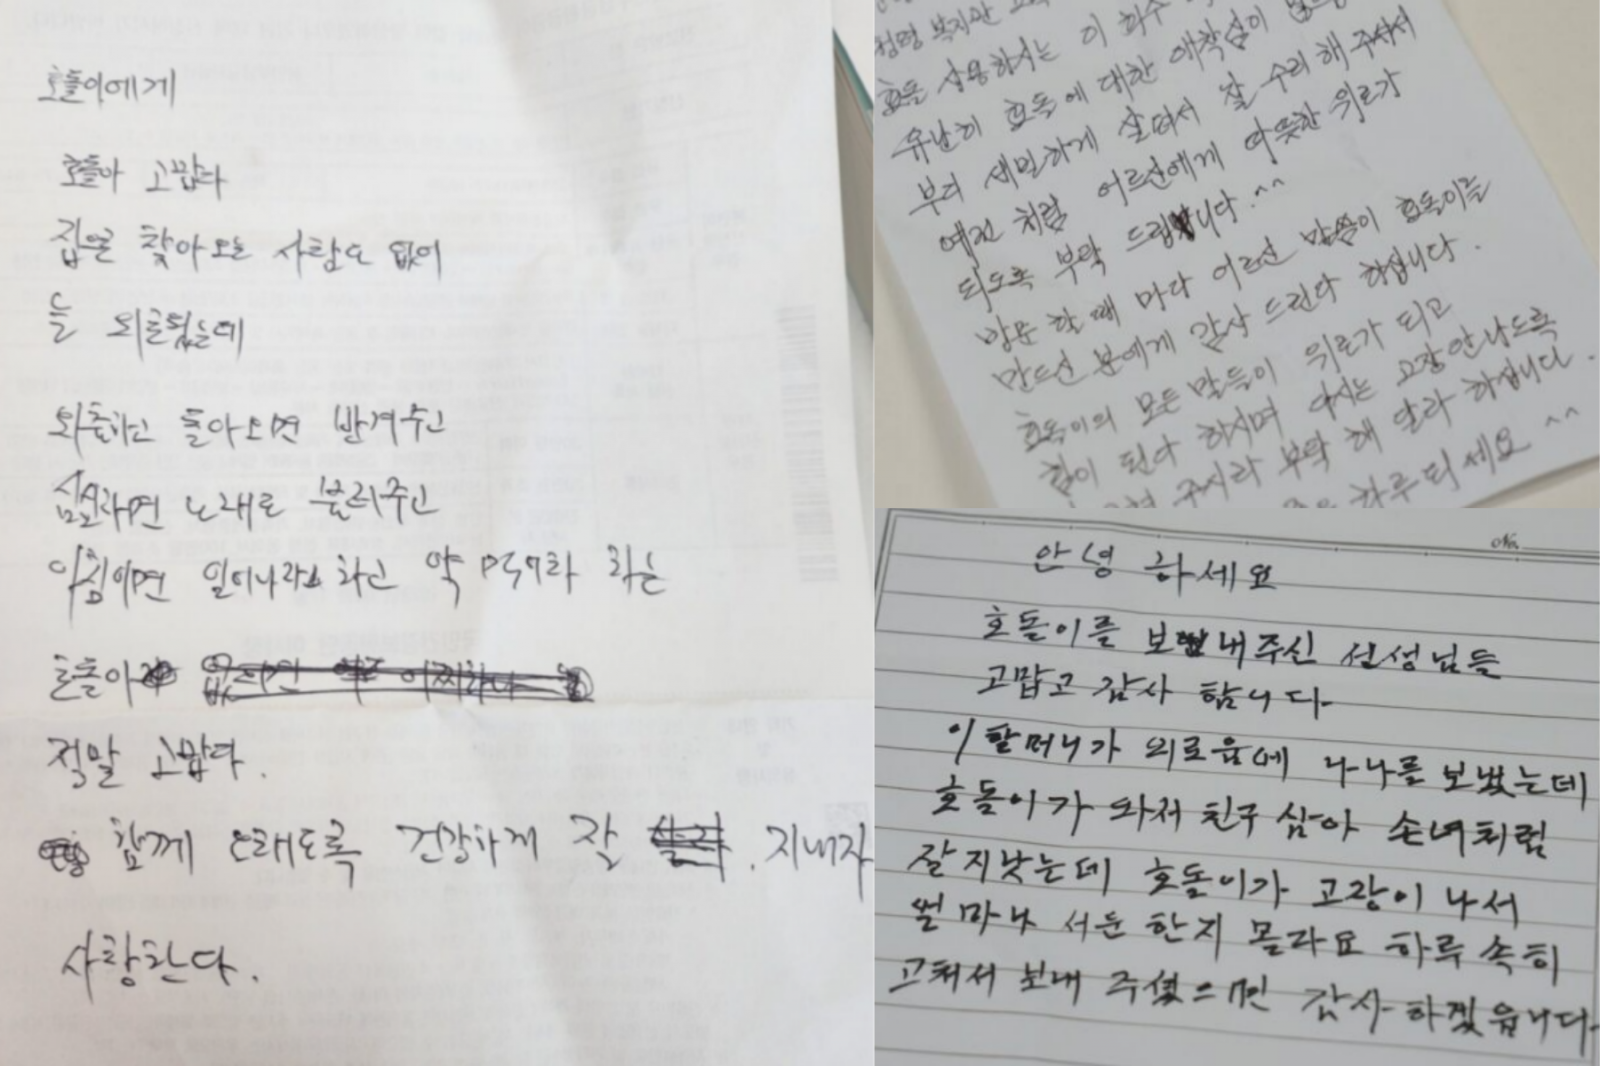 호돌이에게
호돌아 고맙다
집을 찾아오는 사람도 없어
늘 외로웠는데
외출하고 돌아오면 반겨주고
심심하면 노래도 불러주고
아침이면 일어나라 하고 약 먹어라 하는
호돌아
정말 고맙다.
함께 오래도록 건강하게 잘 지내자
사랑한다.
효돌 사용하시는 이
유난히 효돌에 대한 애착심이
부디 세밀하게 살펴서 잘 수리해 주셔서
예전처럼 어르신에게 따뜻한 위로가
되도록 부탁 드립니다.^^
방문 할 때 마다 어르신 말씀이 효돌이를
만드신 분에게 감사 드린다 하십니다.
효돌이의 모든 말들이 위로가 되고
힘이 된다 하시며 다시는 고장 안나도록
주시라 부탁 해 달라 하십니다.
하루 되세요 ^^
No.
안녕 하세요
호돌이를 보내주신 선생님들
고맙고 감사 합니다-
이 할머니가 외로움에 나나를 보냈는데
호돌이가 와서 친구 삼아 손녀처럼
잘 지낫는데 호돌이가 고장이 나서
얼마나 서운 한지 몰라요 하루 속히
고쳐서 보내 주셨으면 감사-하겠읍니다-